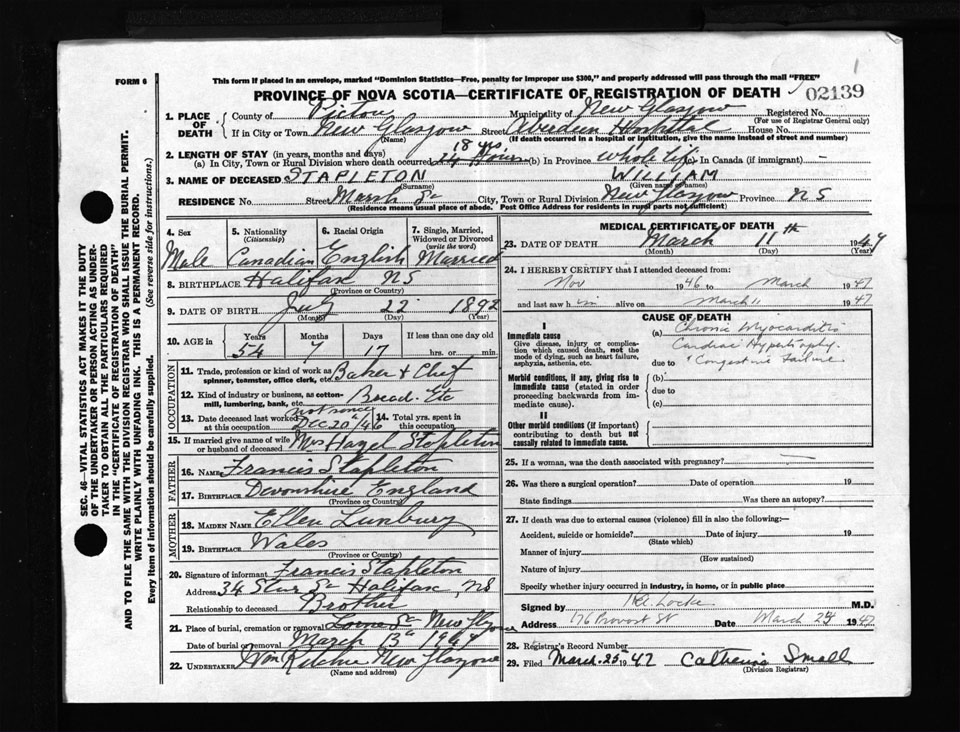 1
FORM 6
This form if placed in an envelope, marked "Dominion Statistics—Free, penalty for improper use $300," and properly addressed will pass through the mail "FREE"
PROVINCE OF NOVA SCOTIA—CERTIFICATE OF REGISTRATION OF DEATH
02139
1. PLACE OF DEATH
County of Pictou Municipality of New Glasgow Registered No.
(For use of Registrar General only)
If in City or Town New Glasgow Street Aberdeen Hospital House No.
(Name) (If death occurred in a hospital or institution, give the name instead of street and number)
2. LENGTH OF STAY (in years, months and days) 18 yrs.
(a) In City, Town or Rural Division where death occurred 24 Hours (b) In Province Whole Life (c) In Canada (if immigrant) —
3. NAME OF DECEASED STAPLETON WILLIAM
(Surname) (Given name or names)
RESIDENCE No. Street Marsh St City, Town or Rural Division New Glasgow Province NS
(Residence means usual place of abode. Post Office Address for residents in rural parts not sufficient)
4. Sex
Male
5. Nationality
(Citizenship)
Canadian
6. Racial Origin
English
7. Single, Married, Widowed or Divorced
(write the word)
Married
8. BIRTHPLACE Halifax NS
(Province or Country)
9. DATE OF BIRTH July 22 1892
(Month) (Day) (Year)
10. AGE in Years Months Days If less than one day old
54 7 17 hrs. or min.
OCCUPATION
11. Trade, profession or kind of work as spinner, teamster, office clerk, etc. Baker & Chef
12. Kind of industry or business, as cotton-mill, lumbering, bank, etc. Bread. Etc
13. Date deceased last worked at this occupation Dec 20/46
14. Total yrs. spent in this occupation
15. If married give name of wife or husband of deceased Mrs Hazel Stapleton
FATHER
16. Name Francis Stapleton
17. Birthplace Devonshire England
(Province or Country)
MOTHER
18. Maiden Name Ellen Lunbury
19. Birthplace Wales
(Province or Country)
20. Signature of informant Francis Stapleton
Address 34 St Halifax, NS
Relationship to deceased Brother
21. Place of burial, cremation or removal Lorne St New Glasgow
Date of burial or removal March 13th 1947
22. UNDERTAKER Wm Ritchie New Glasgow
(Name and address)
MEDICAL CERTIFICATE OF DEATH
23. DATE OF DEATH March 11th 1947
(Month) (Day) (Year)
24. I HEREBY CERTIFY that I attended deceased from
Nov 1946 to March 1947
and last saw him alive on March 11 1947
CAUSE OF DEATH
I
Immediate cause
Give disease, injury or complication which caused death, not the mode of dying, such as heart failure, asphyxia, asthenia, etc.
(a) Chronic Myocarditis
Cardiac Hypertrophy.
due to Congestive Failure.
Morbid conditions, if any, giving rise to immediate cause (stated in order proceeding backwards from immediate cause).
(b)
due to
(c)
II
Other morbid conditions (if important) contributing to death but not causally related to immediate cause.
25. If a woman, was the death associated with pregnancy? —
26. Was there a surgical operation? Date of operation 19
State findings Was there an autopsy?
27. If death was due to external causes (violence) fill in also the following:— —
Accident, suicide or homicide? Date of injury 19
(State which)
Manner of injury
(How sustained)
Nature of injury
Specify whether injury occurred in industry, in home, or in public place
Signed by Locke M.D.
Address 176 Provost St Date March 25 1947
28. Registrar's Record Number
29. Filed March 25 1947 Catherine Small
(Division Registrar)
SEC. 46—VITAL STATISTICS ACT MAKES IT THE DUTY
OF THE UNDERTAKER OR PERSON ACTING AS UNDER-
TAKER TO OBTAIN ALL THE PARTICULARS REQUIRED
IN THE "CERTIFICATE OF REGISTRATION OF DEATH"
AND TO FILE THE SAME WITH THE DIVISION REGISTRAR WHO SHALL ISSUE THE BURIAL PERMIT.
WRITE PLAINLY WITH UNFADING INK. THIS IS A PERMANENT RECORD.
Every item of information should be carefully supplied. (See reverse side for instructions.)